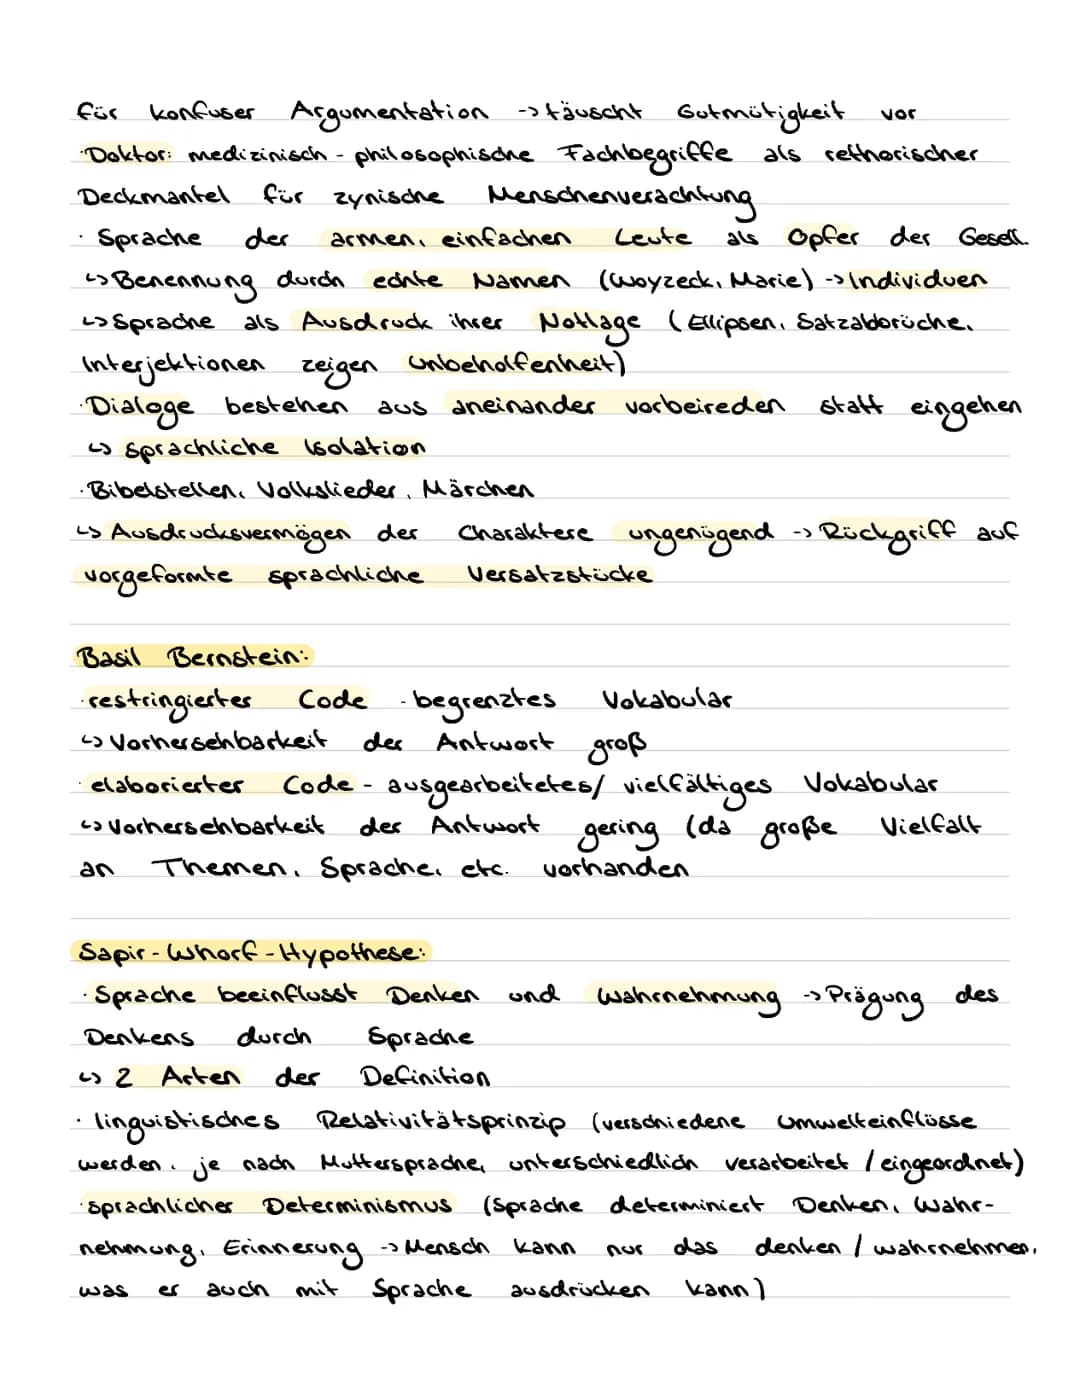 für konfuser Argumentation -> täuscht Gutmütigkeit vor
·Doktor: medizinisch - philosophische Fachbegriffe als rethorischer
Deckmantel für zynische Menschenverachtung
· Sprache der armen, einfachen Leute als Opfer der Gesell.
↳ Benennung durch echte Namen (Woyzeck, Marie) -> Individuen
↳ Sprache als Ausdruck ihrer Notlage (Ellipsen, Satzabbrüche,
Interjektionen zeigen Unbeholfenheit)
·Dialoge bestehen aus aneinander vorbeireden statt eingehen
↳ sprachliche Isolation
·Bibelstellen, Volkslieder, Märchen
↳ Ausdrucksvermögen der Charaktere ungenügend -> Rückgriff auf
vorgeformte sprachliche Versatzstücke
Basil Bernstein:
·restringierter Code - begrenztes Vokabular
↳ Vorhersehbarkeit der Antwort groß
·elaborierter Code - ausgearbeitetes/ vielfältiges Vokabular
↳ Vorhersehbarkeit der Antwort gering (da große Vielfalt
an Themen, Sprache, etc. vorhanden
Sapir - Whorf - Hypothese:
· Sprache beeinflusst Denken und Wahrnehmung -> Prägung des
Denkens durch Sprache
↳ 2 Arten der Definition
· linguistisches Relativitätsprinzip (verschiedene Umwelteinflüsse
werden, je nach Muttersprache, unterschiedlich verarbeitet / eingeordnet)
·sprachlicher Determinismus (Sprache determiniert Denken, Wahr-
nehmung, Erinnerung -> Mensch kann nur das denken / wahrnehmen,
was er auch mit Sprache ausdrücken kann)